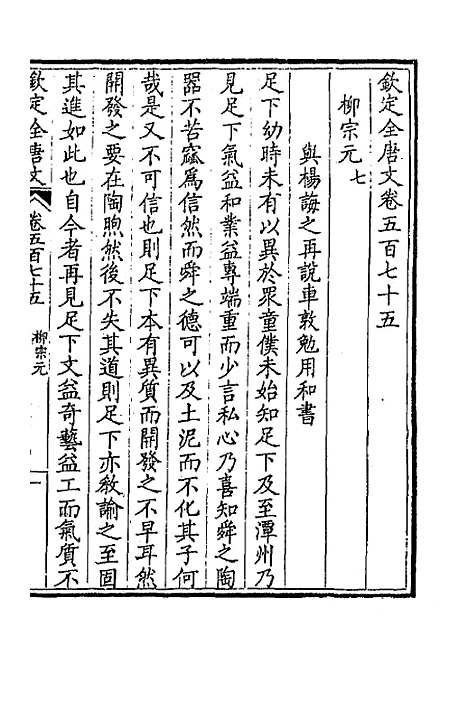 欽定全唐文卷五百七十五
柳宗元七
與楊誨之再說車敦勉用和書
足下幼時未有以異於眾童僕未始知足下及至潭州乃
見足下氣益和業益專端重而少言私心乃喜知舜之陶
器不苦窳爲信然而舜之德可以及土泥而不化其子何
哉是又不可信也則足下本有異質而開發之不早耳然
開發之要在陶煦然後不失其道則足下亦教諭之至固
其進如此也自今者再見足下文益奇藝益工而氣質不
欽定全唐文 卷五百七十五 柳宗元 一